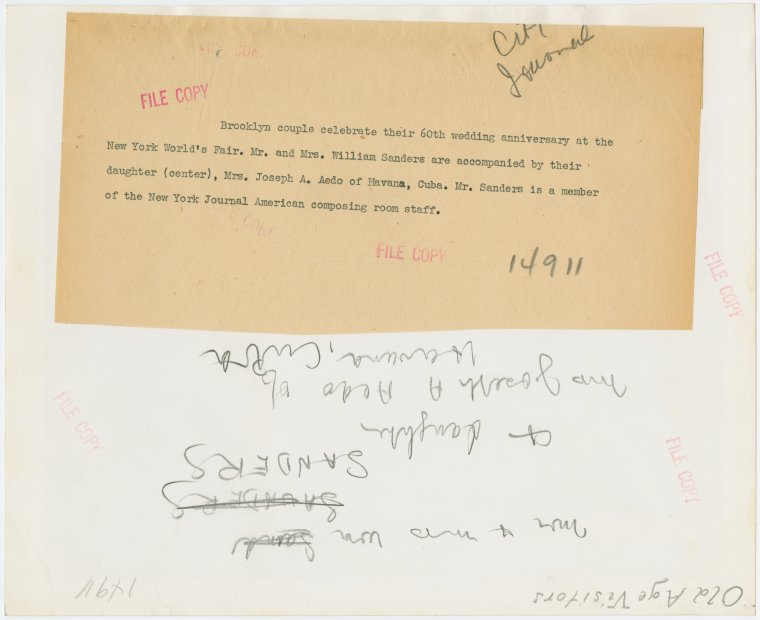 City
Journal
FILE COPY
Brooklyn couple celebrate their 60th wedding anniversary at the
New York World's Fair. Mr. and Mrs. William Sanders are accompanied by their
daughter (center), Mrs. Joseph A. Aedo of Havana, Cuba. Mr. Sanders is a member
of the New York Journal American composing room staff.
FILE COPY
14911
FILE COPY
FILE COPY
FILE COPY
Old Age Visitors
14911
Mr + Mrs Wm
SAUNDERS
SANDERS
+ daughter
Mrs Joseph A Aedo of
Havana, Cuba